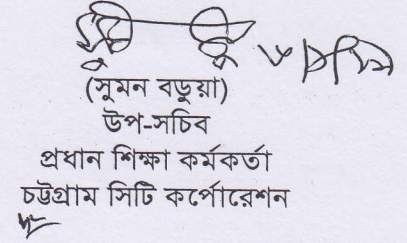 (সুমন বড়ুয়া)
উপ-সচিব
প্রধান শিক্ষা কর্মকর্তা
চট্টগ্রাম সিটি কর্পোরেশন